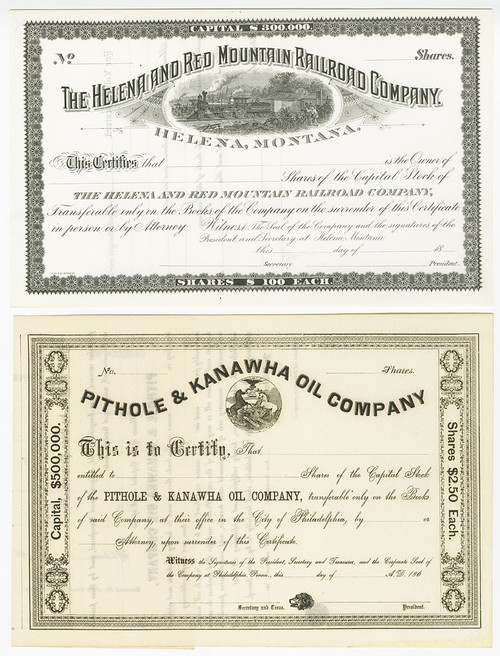 CAPITAL $ 800.000.
No Shares.
THE HELENA AND RED MOUNTAIN RAILROAD COMPANY.
HELENA, MONTANA.
This Certifies that is the Owner of
Shares of the Capital Stock of
THE HELENA AND RED MOUNTAIN RAILROAD COMPANY,
Transferable only on the Books of the Company on the surrender of this Certificate
in person or by Attorney Witness. The Seal of the Company and the signatures of the
President and Secretary at Helena Montana
this day of 18
Secretary President.
SHARES $ 100 EACH.
No. Shares.
PITHOLE & KANAWHA OIL COMPANY
Capital, $500,000.
This is to Certify, That
entitled to Shares of the Capital Stock
of the PITHOLE & KANAWHA OIL COMPANY, transferable only on the Books
of said Company, at their office in the City of Philadelphia, by or
Attorney, upon surrender of this Certificate.
Witness the Signatures of the President, Secretary and Treasurer, and the Corporate Seal of
the Company at Philadelphia, Penna., this day of A.D. 186
Secretary and Treas. President.
Shares $2.50 Each.